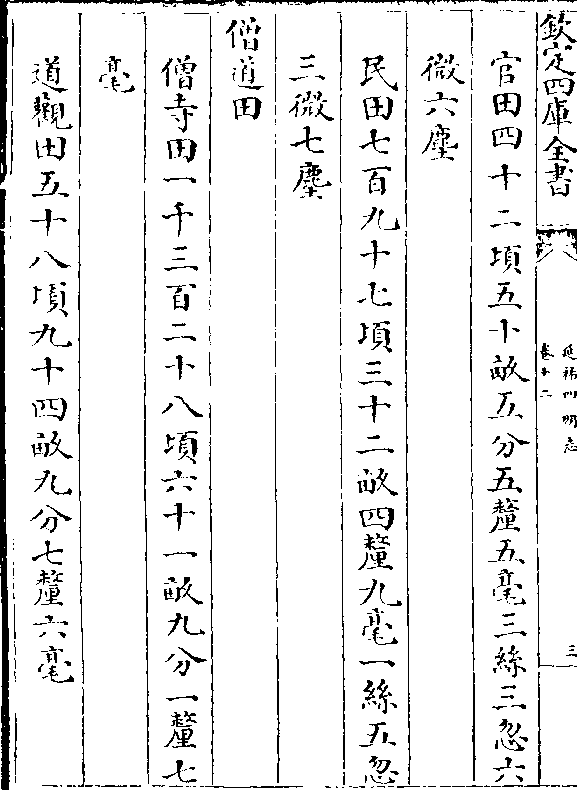 欽定四庫全書
延祐四明志
卷十二
三
官田四十二頃五十畝五分五釐五毫三絲三忽六
微六塵
民田七百九十七頃三十二畝四釐九毫一絲五忽
三微七塵
僧道田
僧寺田一千三百二十八頃六十一畝九分一釐七
毫
道觀田五十八頃九十四畝九分七釐六毫